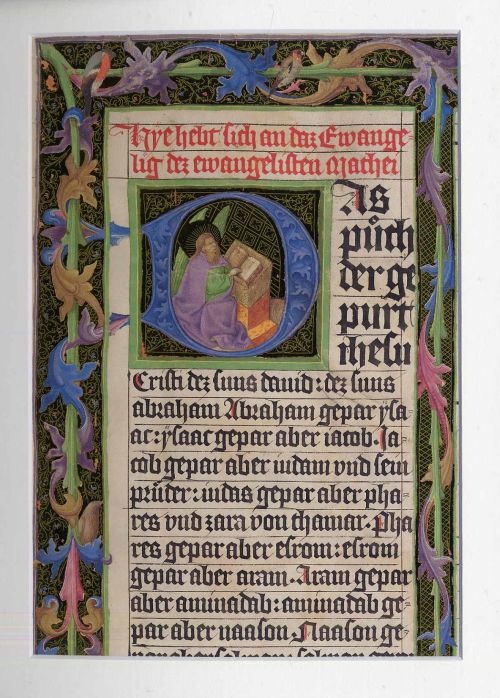 Hye hebt sich an daz Ewange-
lig dez ewangelisten Mathei
DAs
půch
der ge
purt
ihesu
Cristi dez suns dauid: dez suns
abraham Abraham gepar ÿsa-
ac: ÿsaac gepar aber iacob. Ja-
cob gepar aber iudam vnd sein
prüder: iudas gepar aber pha-
res vnd zara von thamar. Pha
res gepar aber esrom: esrom
gepar aber aram. Aram gepar
aber aminadab: aminadab ge-
par aber naason. Naason ge-